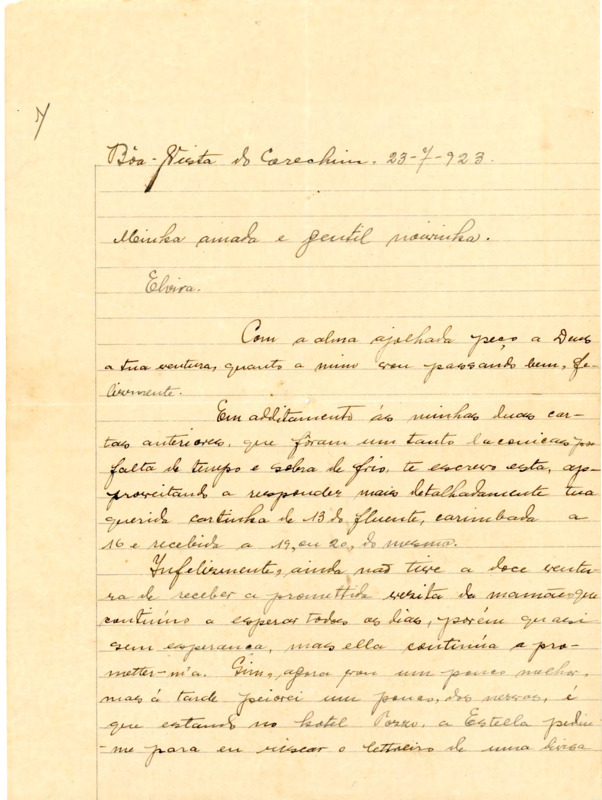 7
Bôa-Vista do Erechim. 23-7-923.
Minha amada e gentil noivinha.
Elvira.
Com a alma ajolhada peço a Deus
a tua ventura, quanto a mim vou passando bem, fe-
lizmente.
Em additamento ás minhas duas car-
tas anteriores, que fôram um tanto laconicas por
falta de tempo e sobra de frio, te escrevo esta, ap-
proveitando a responder mais detalhadamente tua
querida cartinha de 13 do fluente, carimbada a
16 e recebida a 19, ou 20, do mesmo.
Infelizmente, ainda não tive a doce ventu-
ra de receber a promettida vezita da mamãe que
continúo a esperar todos os dias, porém quasi
sem esperança, mas ella continúa a pro-
metter-m'a. Sim, agora vou um pouco melhor,
mas á tarde peiorei um pouco, dos nervos, é
que estando no hotel Pozzo, a Estella pediu-
-me para eu riscar o lettreiro de uma